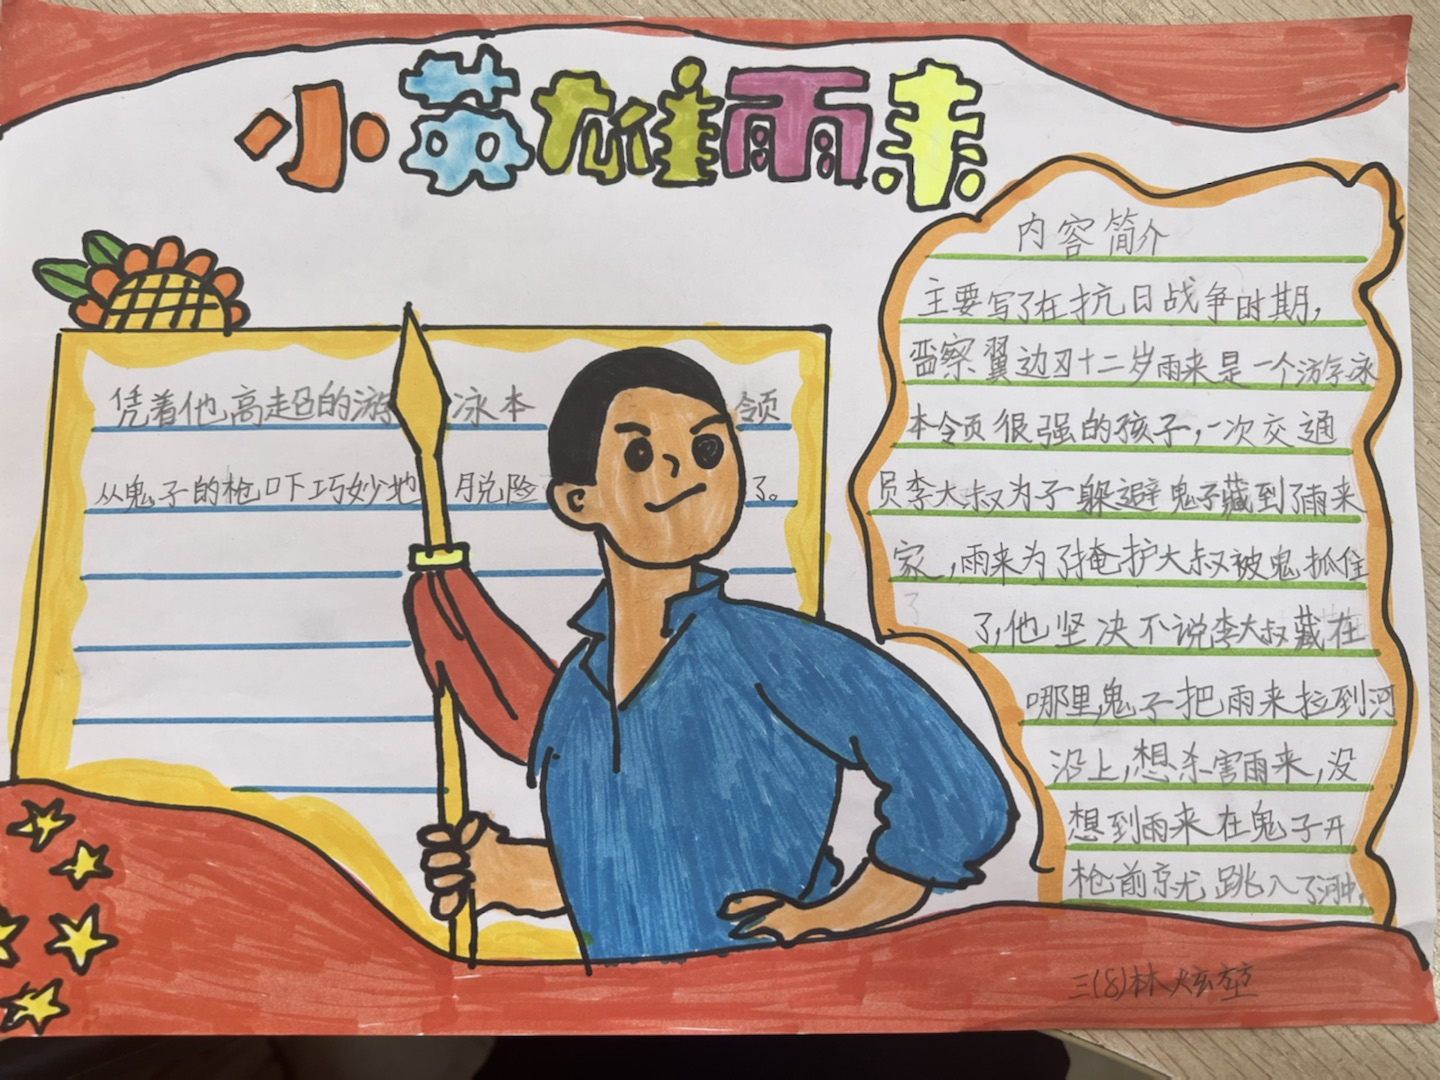 小英雄雨来
内容简介
主要写了在抗日战争时期,
晋察冀边区十二岁雨来是一个游泳
本领很强的孩子,一次交通
员李大叔为了躲避鬼子藏到了雨来
家,雨来为了掩护大叔被鬼抓住
了,他坚决不说李大叔藏在
哪里,鬼子把雨来拉到河
沿上,想杀害雨来,没
想到雨来在鬼子开
枪前就跳入了河中,
凭着他高超的游泳本领
从鬼子的枪口下巧妙地脱险了。
三(8)林炫堃